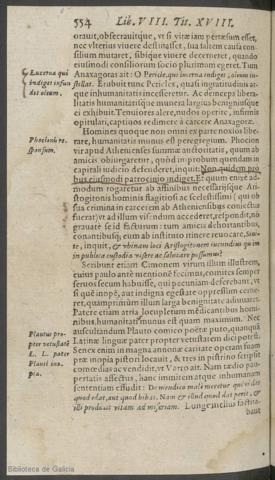 554 Lib. VIII. Tit. XVIII.
orauit, obsecrauitque, vt si vitæ iam pertæsum esset,
nec vlterius viuere destinasset, sua saltem causa con-
silium mutaret, sibique viuere decerneret, quando
eiusmodi consiliorum socio plurimum egeret. Tum
Lucerna qui Anaxagoras ait: O Pericle, qui lucerna indiget, oleum in-
indiget infun stillat. Erubuit tunc Pericles, quasi ingratitudinis at-
dit oleum. que inhumanitatis insceleretur. Ac deinceps libera-
litatis humanitatisque munera largius benigniusque
ei exhibuit. Tenuiores alere, nudos operire, infirmis
opitulari, captiuos redimere è carcere Anaxagoræ.
Homines quoque non omni ex parte noxios libe-
rare, humanitatis munus est peregregium. Phocion
Phocionis re vir apud Athenienses summæ auctoritatis, quum ab
sponsum. amicis obiurgaretur, quòd improbum quendam in
capitali iudicio defenderet, inquit: Non quidem pro
bus eiusmodi patrocinio indiget. Et quum enixè ad-
modum rogaretur ab affinibus necessariisque Ari-
stogitonis hominis flagitiosi ac scelestissimi (qui ob
sua crimina in carcerem ab Atheniensibus coniectus
fuerat) vt ad illum visendum accederet, respondit, nō
grauatè se id facturum: tum amicis dehortantibus,
conantibusque, eum ab instituto itinere reuocare,
inquit, & vbinam loci Aristogitonem iucundius quàm
in publica custodia visere ac salutare possumus?
Scribunt etiam Cimonem virum illum illustrem,
cuius paulo antè mentionē fecimus, comites semper
seruos secum habuisse, qui pecuniam deferebant, vt
sis quē inopē, aut indigna egestate oppressum cerne-
ret, quamprimùm illum larga benignitate adiuuaret.
Patere etiam atria locupletum medicantibus homi-
nibus, humanitatis munus est quàm maximum. Nec
auscultandum Plauto comico poëtæ puto, quanquā
Plautus pro- Latinæ linguæ pater propter vetustatem dici potest.
pter vetustatē Senex enim in magna annonæ caritate operam suam
L. L. pater præ inopia pistori locauit, & tres in pistrino scripsit
Plauti ino- comœdias ac vendidit, vt Varro ait. Nam tædio pau-
pia. pertatis affectus, hanc immitem atque inhumanam
sententiam effudit: De mendico malè meretur qui ei dat
quod edat, aut quod bibat. Nam & illud quod dat perit, &
illi producit vitam ad miseriam. Longè meliùs factita-
baut
Biblioteca de Galicia